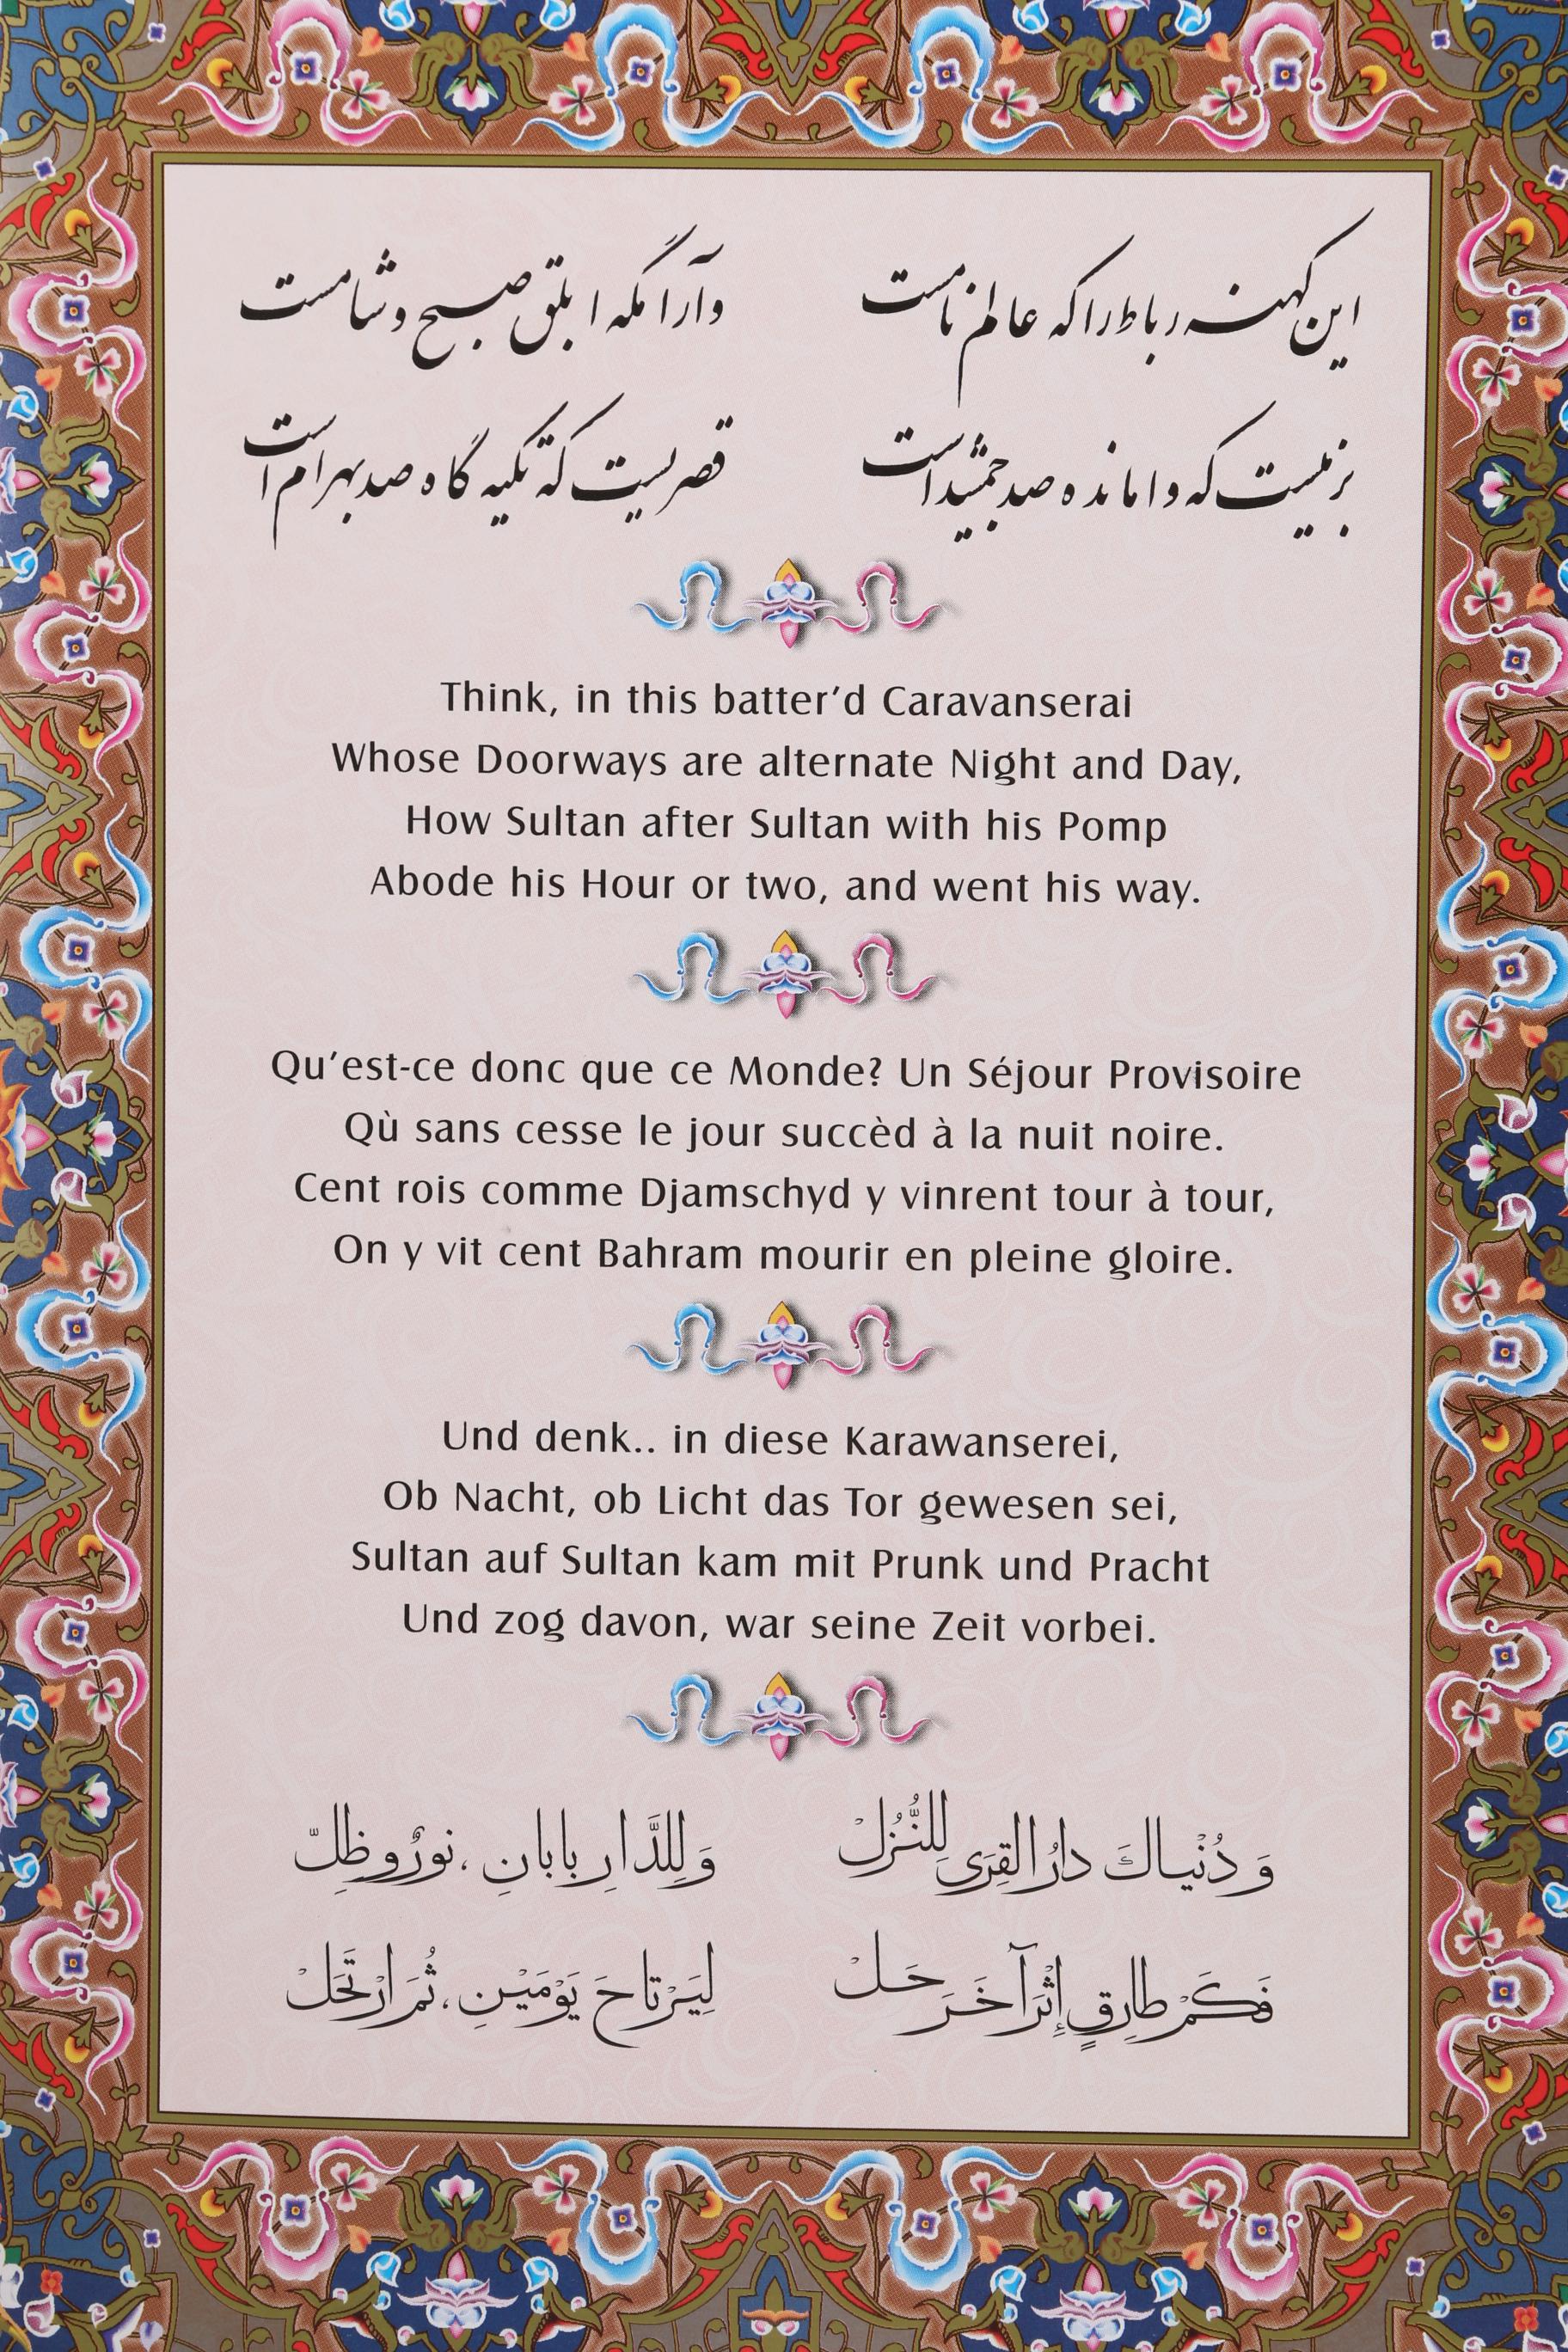 این کهنه رباط را که عالم نامست وآرامگه ابلق صبح و شامست
بزمیست که وامانده صد جمشید است قصریست که تکیه گاه صد بهرام است
Think, in this batter’d Caravanserai
Whose Doorways are alternate Night and Day,
How Sultan after Sultan with his Pomp
Abode his Hour or two, and went his way.
Qu’est-ce donc que ce Monde? Un Séjour Provisoire
Qù sans cesse le jour succèd à la nuit noire.
Cent rois comme Djamschyd y vinrent tour à tour,
On y vit cent Bahram mourir en pleine gloire.
Und denk.. in diese Karawanserei,
Ob Nacht, ob Licht das Tor gewesen sei,
Sultan auf Sultan kam mit Prunk und Pracht
Und zog davon, war seine Zeit vorbei.
وَ دُنْياكَ دارُ القِرَى لِلنُّزُلْ وَلِلدَّارِ بابانِ، نورٌ وظِلّ
فَكَمْ طارِقٍ إِثْرَ آخَرَ حَلْ لِيَرْتاحَ يَوْمَيْنِ، ثُمَ ارْتَحَلْ